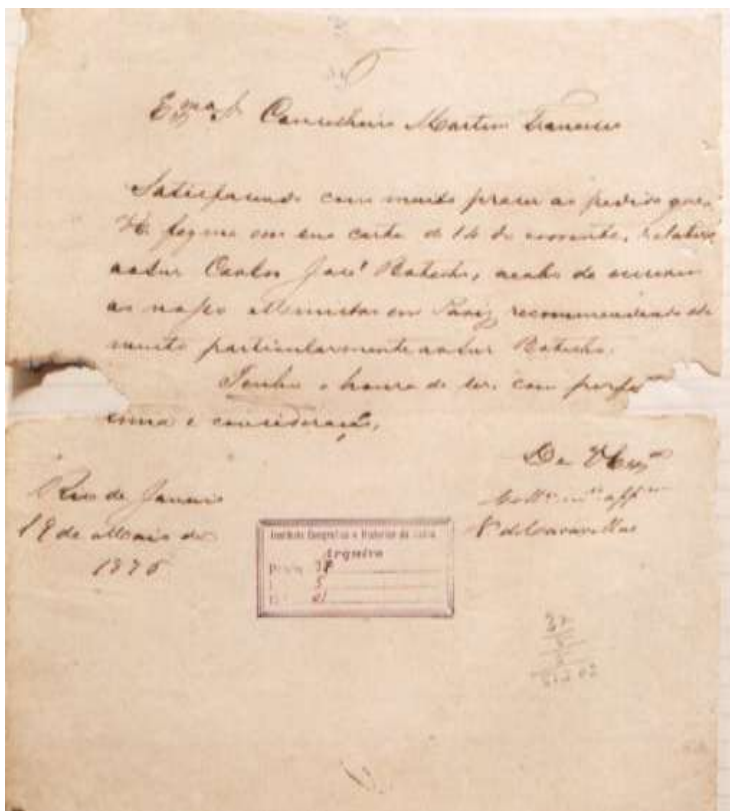 Conselheiro Martim Francisco
Satisfazendo com muito prazer ao pedido que
fez-me em sua carta de 14 do corrente, relativo
ao Snr Carlos José Botelho, acabo de escrever
ao nosso Ministro em Pariz recommendando-lhe
muito particularmente ao Snr Botelho.
Tenho a honra de ser, com
estima e consideração,
De VExª
Rio de Janeiro
19 de Maio de
1876
Instituto Geografico e Historico da Bahia
Arquivo
37
5